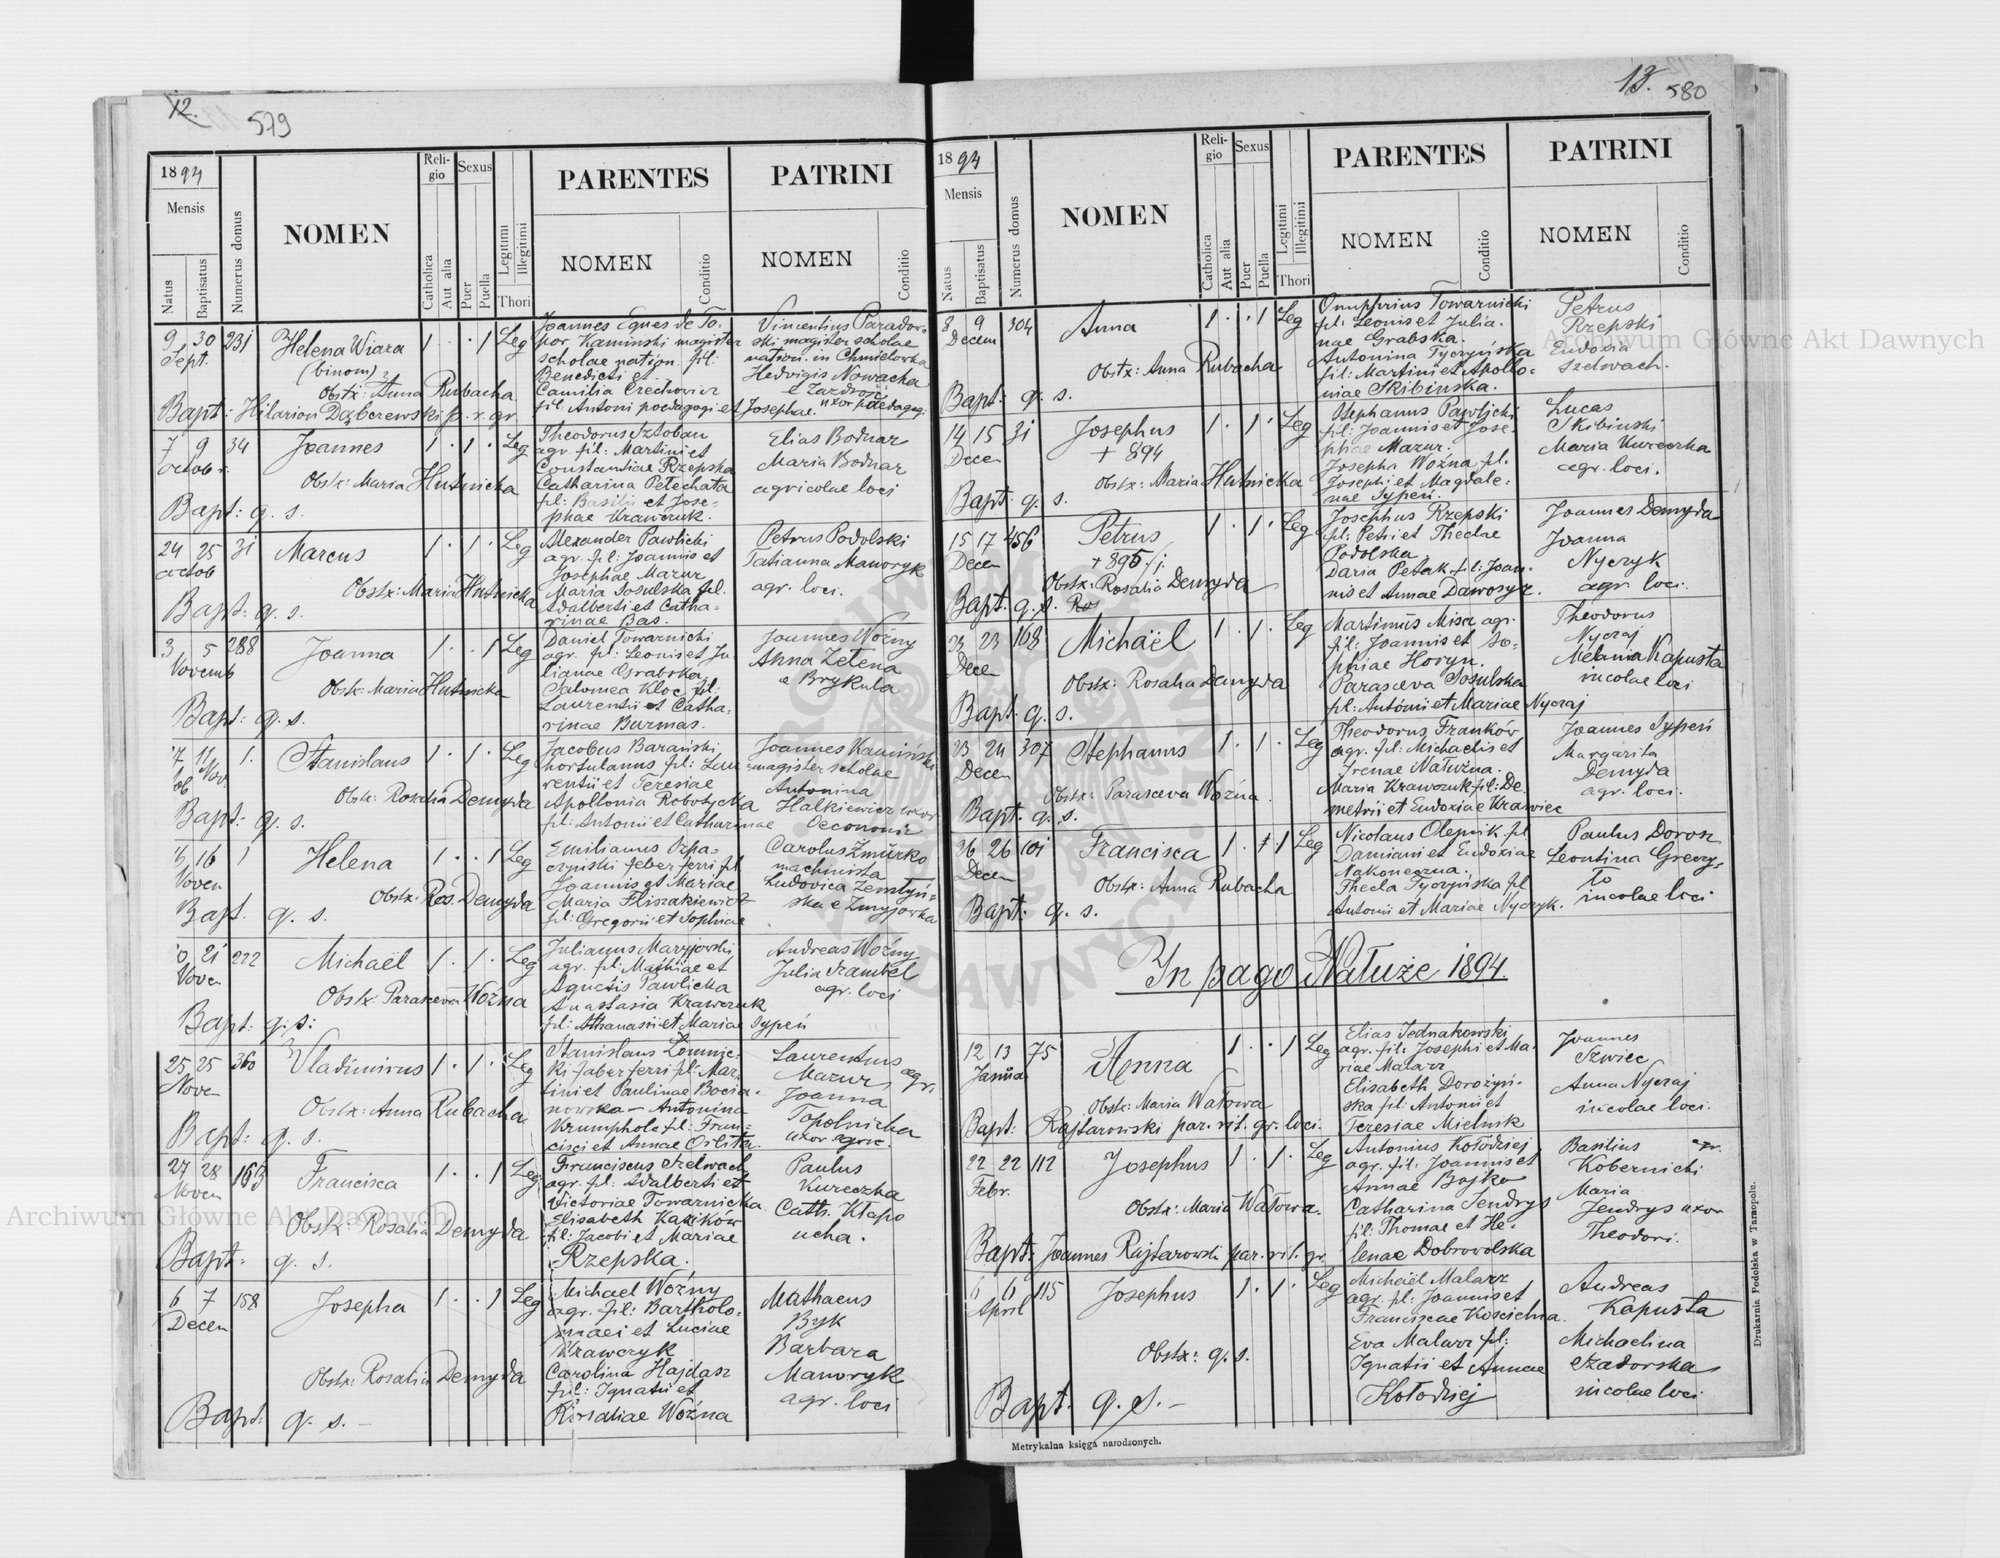 12.
579
1894
Mensis
Natus
Baptisatus
Numerus domus
NOMEN
Religio
Catholica
Aut alia
Sexus
Puer
Puella
Legitimi
Illegitimi
Thori
PARENTES
NOMEN
Conditio
PATRINI
NOMEN
Conditio
9 30 231
Sept.
Helena Wiara
(binom)
Obstx: Anna Rubacha
Bapt: Hilarion Dąbczewski p. r. gr
1 . . 1 Leg
Joannes Eques de To-
por Kaminski magister
scholae nation. fil:
Benedicti et
Camilia
fil. Antoni poedagogi et Josephae.
Vincentius Parado-
ski magister scholae
nation. in Chmielowka
Hedvigis Nowacka
e Zazdrość
uxor paedagogi
7 9 34
octob
Joannes
Obstx: Maria Hutnicka
Bapt: q. s.
1 . 1 . Leg
Theodorus Sztoban
agr. fil: Martini et
Constantiae Rzepska
Catharina Petechata
fil: Basilii et Jose-
phae Krawczuk.
Elias Bodnar
Maria Bodnar
agricolae loci
24 25 31
octob
Marcus
Obstx: Maria Hutnicka
Bapt: q. s.
1 . 1 . Leg
Alexander Pawlicki
agr. fil: Joannis et
Josephae Mazur
Maria Sosulska fil.
Adalberti et Catha-
rinae Bas.
Petrus Podolski
Tatianna Manoryk
agr. loci.
3 5 288
Novemb
Joanna
Obstx: Maria Hutnicka
Bapt: q. s.
1 . . 1 Leg
Daniel Towarnicki
agr. fil: Leonis et Ju
lianae Grabska,
Salomea Kloc fil:
Laurentii et Catha-
rinae Burmas.
Joannes Woźny
Anna Zelena
e Brykula
7 11 1.
Nov.
Stanislaus
Obstx: Rosalia Demyda
Bapt: q. s.
1 . 1 . Leg
Jacobus Barański
hortulanus fil: Lau
rentii et Teresiae
Apollonia Robotycka
fil: Antonii et Catharinae
Joannes Kamiński
magister scholae
Antonina
Halkiewicz uxor
Oeconomi
16 1
Noven
Helena
Obstx: Ros. Demyda
Bapt. q. s.
1 . . 1 Leg
Emilianus
faber ferri fil
Joannis et Mariae
Maria Fliszakiewicz
fil: Gregorii et Sophiae
Carolus Zmurko
machinista
Ludovica Zemlyń-
ska e Zmyjowka
21 222
Nove
Michaël
Obstx: Parascevia Woźna
Bapt: q. s:
1 . 1 . Leg
Julianus Maryjowski
agr. fil: Mathiae et
Agnetis Pawlicka
Anastasia Krawczuk
fil: Athanasii et Mariae Sypeń
Andreas Woźny
Julia Srambel
agr. loci
25 25 360
Nove
Vladimirus
Obstx: Anna Rubacha
Bapt: q. s.
1 . 1 . Leg
Stanislaus Łomnic-
ki faber ferri fil: Mar-
tini et Paulinae Bocia-
nowska — Antonina
Krumphole fil: Fran-
cisci et Annae Oilita.
Laurentius
Mazur agr.
Joanna
Topolnicka
uxor agric.
27 28 163
Noven
Francisca
Obstx: Rosalia Demyda
Bapt: q. s.
1 . . 1 Leg
Franciscus Szelwach
agr. fil: Adalberti et
Victoriae Towarnicka.
Elisabeth Kazików
fil: Jacobi et Mariae
Rzepska.
Paulus
Kureczka
Cath. Kłapo
ucha.
6 7 158
Decen
Josepha
Obstx: Rosalia Demyda
Bapt: q. s. —
1 . . 1 Leg
Michael Woźny
agr. fil: Bartholo-
maei et Luciae
Krawczyk
Carolina Hajdasz
fil: Ignatii et
Rosaliae Woźna
Mathaeus
Byk
Barbara
Manoryk
agr. loci
13.
580
1894
Mensis
Natus
Baptisatus
Numerus domus
NOMEN
Religio
Catholica
Aut alia
Sexus
Puer
Puella
Legitimi
Illegitimi
Thori
PARENTES
NOMEN
Conditio
PATRINI
NOMEN
Conditio
8 9 304
Decem
Anna
Obstx: Anna Rubacha
Bapt: q. s.
1 . . 1 Leg
Onuphrius Towarnicki
fil: Leonis et Julia-
nae Grabska.
Antonina Tyczyńska
fil: Martini et Apollo-
niae Skibinska.
Petrus
Rzepski
Eudoxia
Szelwach.
14 15 31
Decen
Josephus
+ 894
Obstx: Maria Hutnicka
Bapt: q. s.
1 . 1 . Leg
Stephanus Pawlicki
fil: Joannis et Jose-
phae Mazur.
Josepha Woźna fil.
Josephi et Magdale-
nae Sypeń.
Lucas
Skibinski
Maria Kureczka
agr. loci.
15 17 456
Decen
Petrus
+ 895/j.
Obstx: Rosalia Demyda
Bapt. q. s. Ros
1 . 1 . Leg
Josephus Rzepski
fil: Petri et Theclae
Podolska.
Daria Petak fil: Joan-
nis et Annae Dawosyr.
Joannes Demyda
Joanna
Nyczyk
agr. loci.
23 23 168
Dece
Michaël
Obstx: Rosalia Demyda
Bapt: q. s.
1 . 1 . Leg
Martinus Misa agr.
fil: Joannis et So-
phiae Horyn.
Parasceva Sosulska
fil: Antonii et Mariae Nyczaj
Theodorus
Nyczaj
Melania Kapusta
incolae loci
23 24 307
Decen
Stephanus
Obstx: Parasceva Woźna.
Bapt: q. s.
1 . 1 . Leg
Theodorus Franków
agr. fil: Michaelis et
Irenae Natużna.
Maria Krawczuk fil: De-
metrii et Eudoxiae Krawiec
Joannes Sypeń
Margarita
Demyda
agr. loci.
26 26 101
Decen
Francisca
Obstx: Anna Rubacha
Bapt: q. s.
1 . 1 Leg
Nicolaus Olejnik fil
Damiani et Eudoxiae
Nakoneczna.
Thecla Tyczyńska fil
Antonii et Mariae Nyczyk.
Paulus Dorosz
Leontina Greczy-
lo
incolae loci
In pago Nałuże 1894.
12 13 75
Janua
Anna
Obstx: Maria Wałowa
Bapt: Rajtarowski par. rit. gr. loci.
1 . . 1 Leg
Elias Jednakowski
agr. fil: Josephi et Ma-
riae Malarz
Elisabeth Dorożyń-
ska fil: Antonii et
Teresiae Mielnik
Joannes
Szwiec
Anna Nyczaj
incolae loci.
22 22 112
Febr.
Josephus
Obstx: Maria Wałowa.
Bapt: Joannes Rajtarowski par. rit. gr.
1 . 1 . Leg
Antonius Kołodziej
agr. fil: Joannis et
Annae Bojko
Catharina Jendrys
fil: Thomae et He-
lenae Dobrowolska
Basilius agr.
Kobernicki
Maria
Jendrys uxor
Theodori.
6 6 115
April
Josephus
Obstx: q. s.
Bapt. q. s. —
1 . 1 . Leg
Michaël Malarz
agr. fil: Joannis et
Franciscae Kościelna.
Eva Malarz fil:
Ignatii et Annae
Kołodziej
Andreas
Kapusta
Michaelina
Szadorska
incolae loci
Metrykalna księga narodzonych.
Drukarnia Podolska w Tarnopolu.
Archiwum Główne Akt Dawnych
Archiwum Główne Akt Dawnych